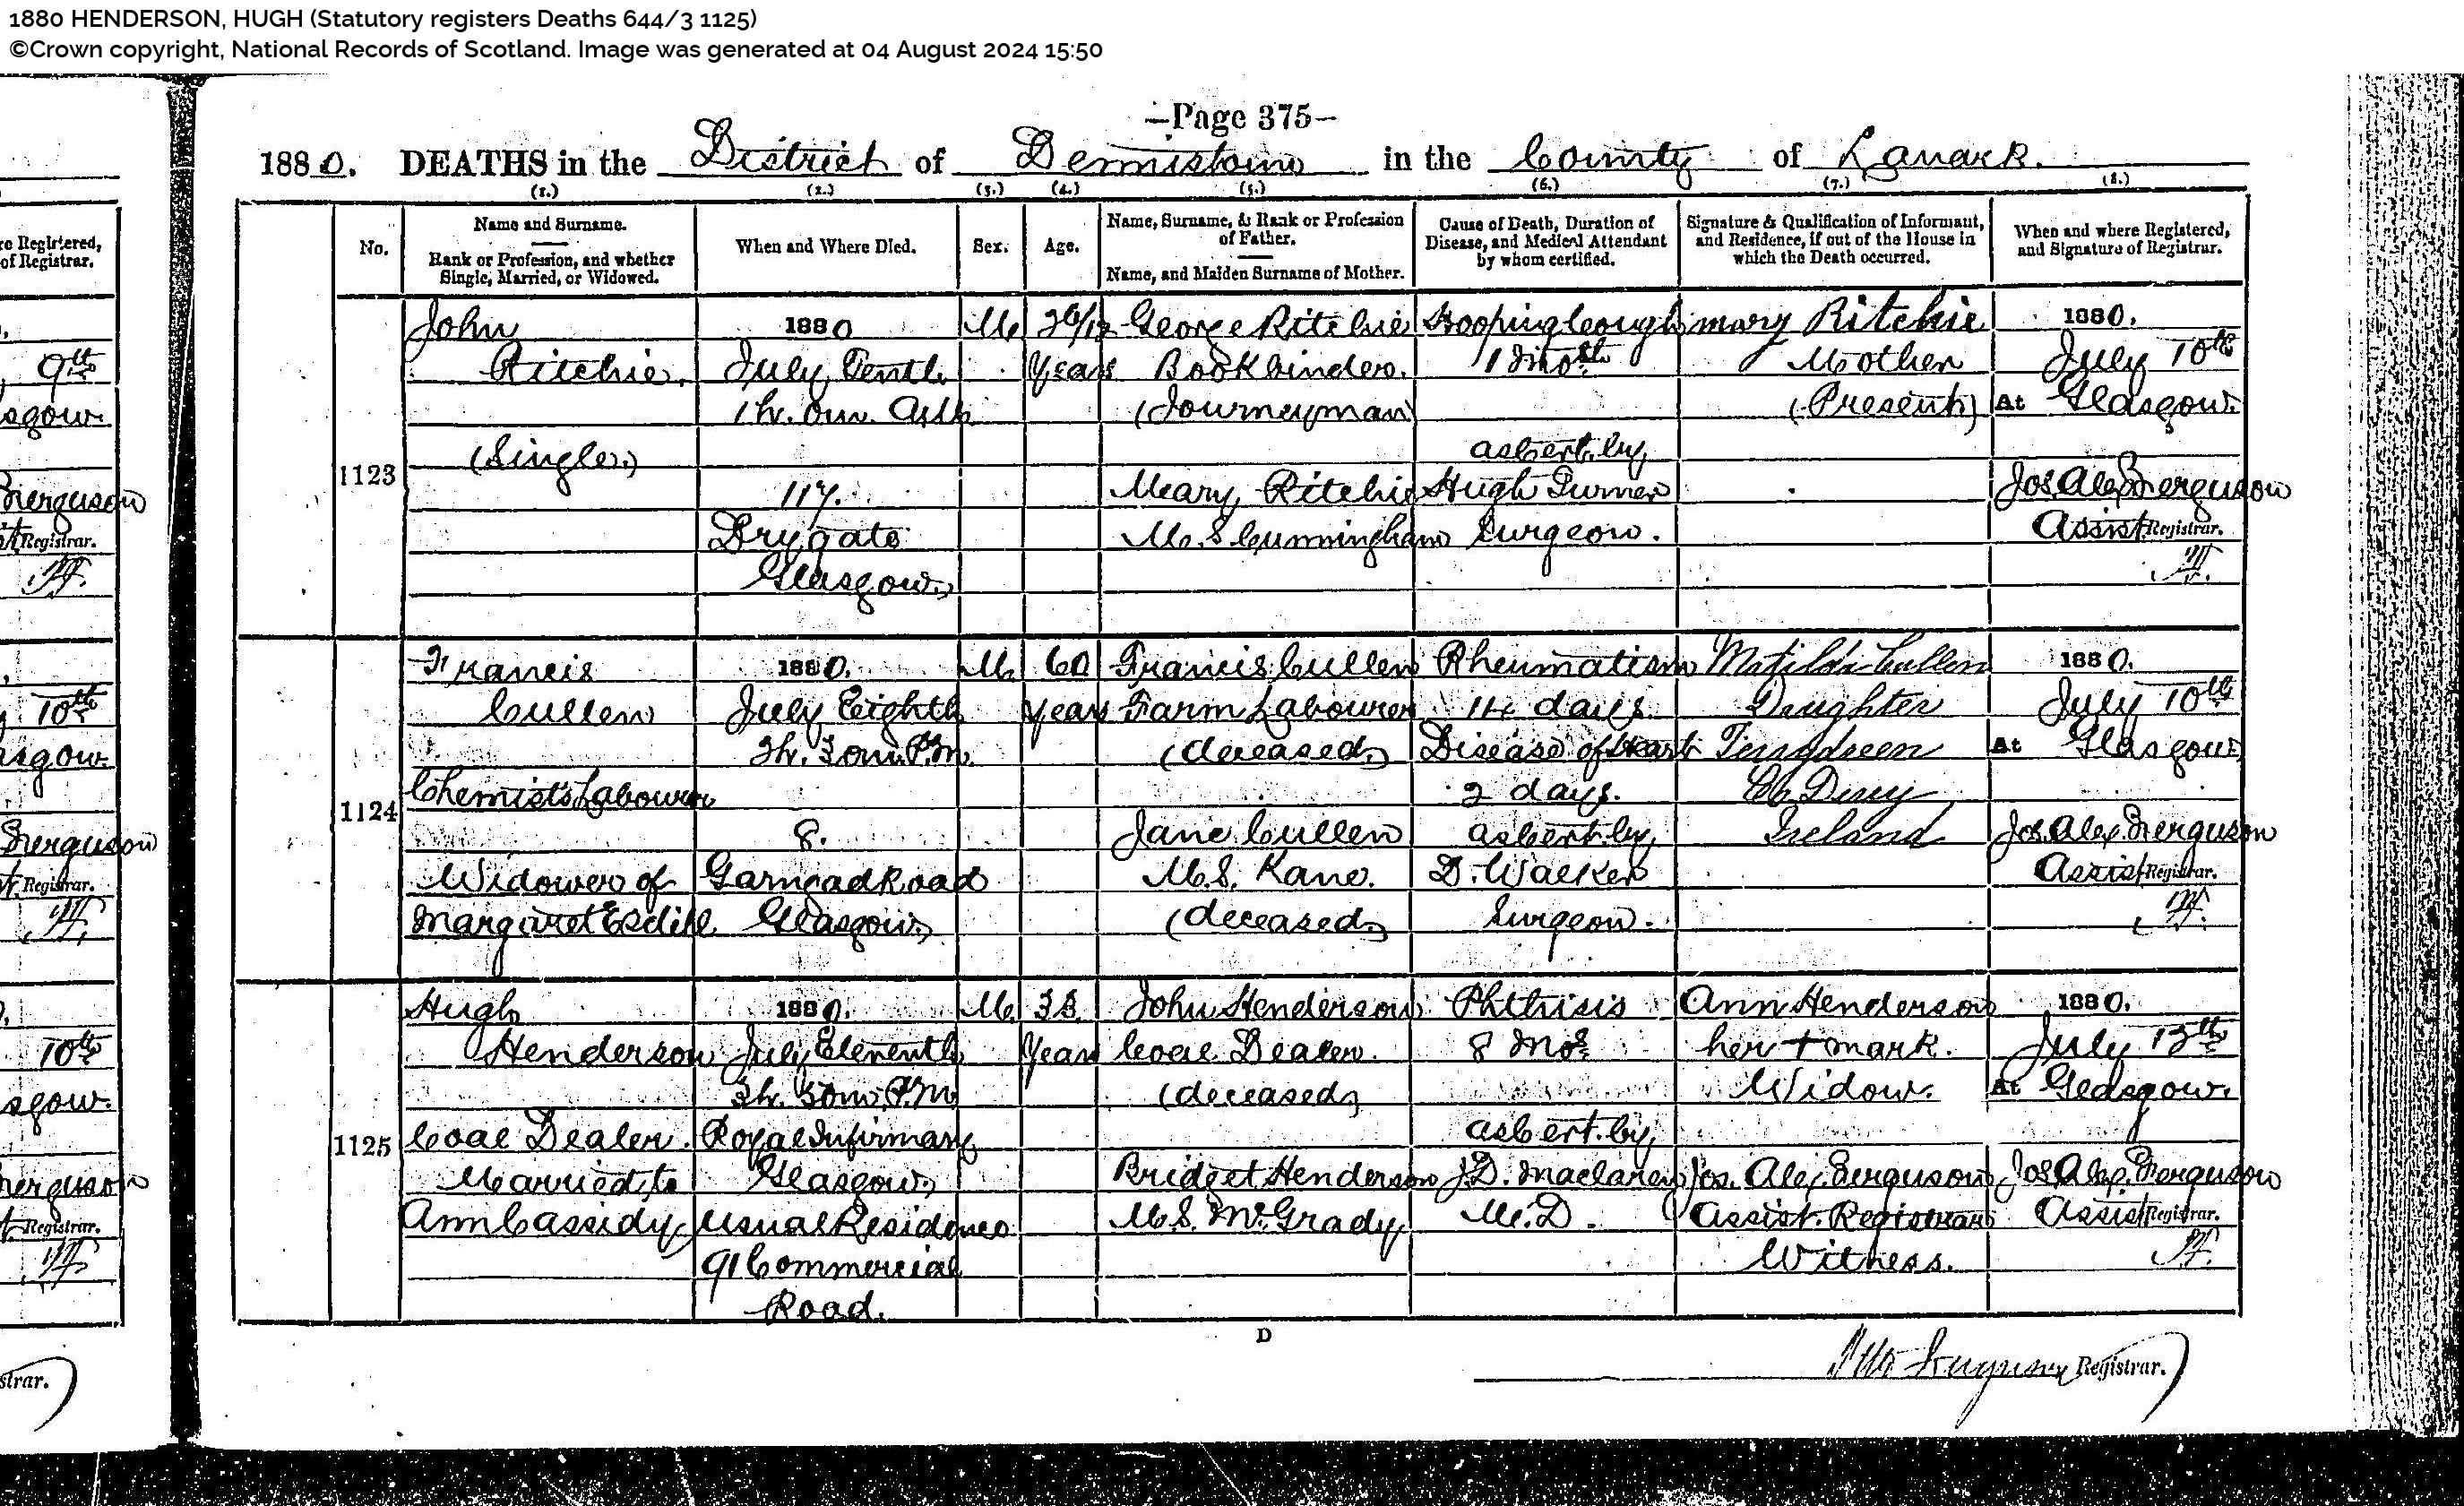 1880 HENDERSON, HUGH (Statutory registers Deaths 644/3 1125)
©Crown copyright, National Records of Scotland. Image was generated at 04 August 2024 15:50
—Page 375—
1880. DEATHS in the District of Dennistoun in the County of Lanark.
(1.) (2.) (3.) (4.) (5.) (6.) (7.) (8.)
No.
Name and Surname.
Rank or Profession, and whether
Single, Married, or Widowed.
When and Where Died.
Sex.
Age.
Name, Surname, & Rank or Profession
of Father.
Name, and Maiden Surname of Mother.
Cause of Death, Duration of
Disease, and Medical Attendant
by whom certified.
Signature & Qualification of Informant,
and Residence, if out of the House in
which the Death occurred.
When and where Registered,
and Signature of Registrar.
1123
John
Ritchie.
(Single.)
1880
July Tenth
1h. 0m. A.M.
117.
Drygate
Glasgow.
M.
2 6/12
Years
George Ritchie
Bookbinder.
(Journeyman)
Mary Ritchie
M.S. Cunningham
Hooping Cough
1 Mo.
as cert. by
Hugh Turner
Surgeon.
Mary Ritchie
Mother
(Present)
1880.
July 10th
At Glasgow.
Jos. Alex. Ferguson
Assist. Registrar.
1124
Francis
Cullen
Chemist's Labourer
Widower of
Margaret
1880.
July Eighth
3h. 30m. P.M.
8.
Garngad Road
Glasgow.
M.
60
Years
Francis Cullen
Farm Labourer
(deceased)
Jane Cullen
M.S. Kane.
(deceased)
Rheumatism
14 days
Disease of Heart
2 days.
as cert. by
D. Walker
Surgeon.
Matilda Cullen
Daughter
Co Derry
Ireland
1880.
July 10th
At Glasgow.
Jos. Alex. Ferguson
Assist. Registrar.
1125
Hugh
Henderson
Coal Dealer.
Married to
Ann Cassidy
1880.
July Eleventh
3h. 30m. P.M.
Royal Infirmary
Glasgow.
Usual Residence
91 Commercial
Road.
M.
Years
John Henderson
Coal Dealer.
(deceased)
Bridget Henderson
M.S. McGrady
Phthisis
8 Mos
as cert. by
J.D. Maclaren
M.D.
Ann Henderson
her + mark.
Widow.
Jos. Alex. Ferguson
Assist. Registrar
Witness.
1880.
July 13th
At Glasgow.
Jos. Alex. Ferguson
Assist. Registrar.
D
Ferguson Registrar.